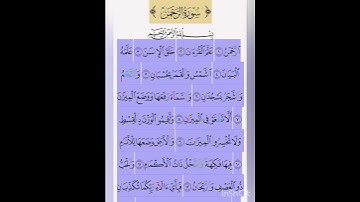 سُورَةُ الرَّحْمَٰن
بِسْمِ اللَّهِ الرَّحْمَٰنِ الرَّحِيمِ
الرَّحْمَٰنُ ١ عَلَّمَ الْقُرْءَانَ ٢ خَلَقَ الْإِنسَٰنَ ٣ عَلَّمَهُ
الْبَيَانَ ٤ الشَّمْسُ وَالْقَمَرُ بِحُسْبَانٍ ٥ وَ
وَالشَّجَرُ يَسْجُدَانِ ٦ وَالسَّمَاءَ رَفَعَهَا وَوَضَعَ الْمِيزَانَ
٧ أَلَّا تَطْغَوْا فِي الْمِيزَانِ ٨ وَأَقِيمُوا الْوَزْنَ بِالْقِسْطِ
وَلَا تُخْسِرُوا الْمِيزَانَ ٩ وَالْأَرْضَ وَضَعَهَا لِلْأَنَامِ
١٠ فِيهَا فَٰكِهَةٌ ذَاتُ الْأَكْمَامِ ١١ وَالْحَبُّ
ذُو الْعَصْفِ وَالرَّيْحَانُ ١٢ فَبِأَيِّ ءَالَاءِ رَبِّكُمَا تُكَذِّبَانِ